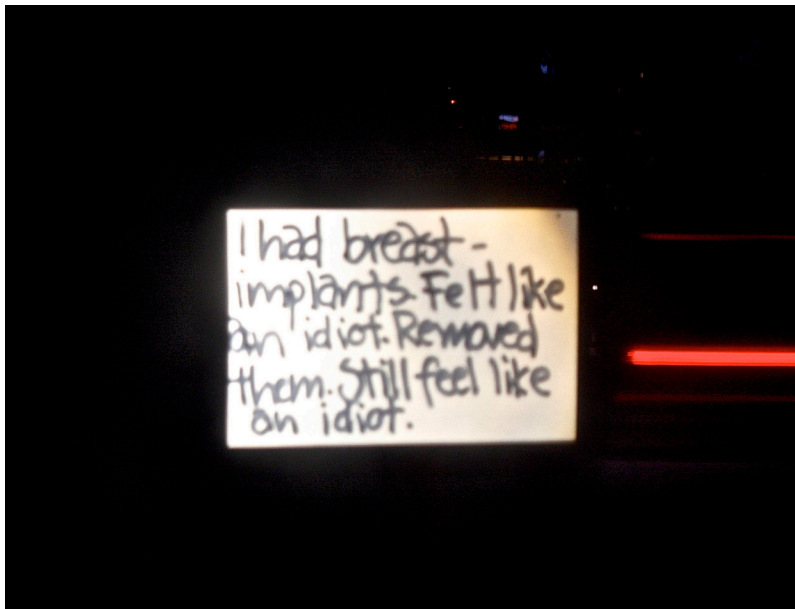 I had breast-
implants. Felt like
an idiot. Removed
them. Still feel like
an idiot.